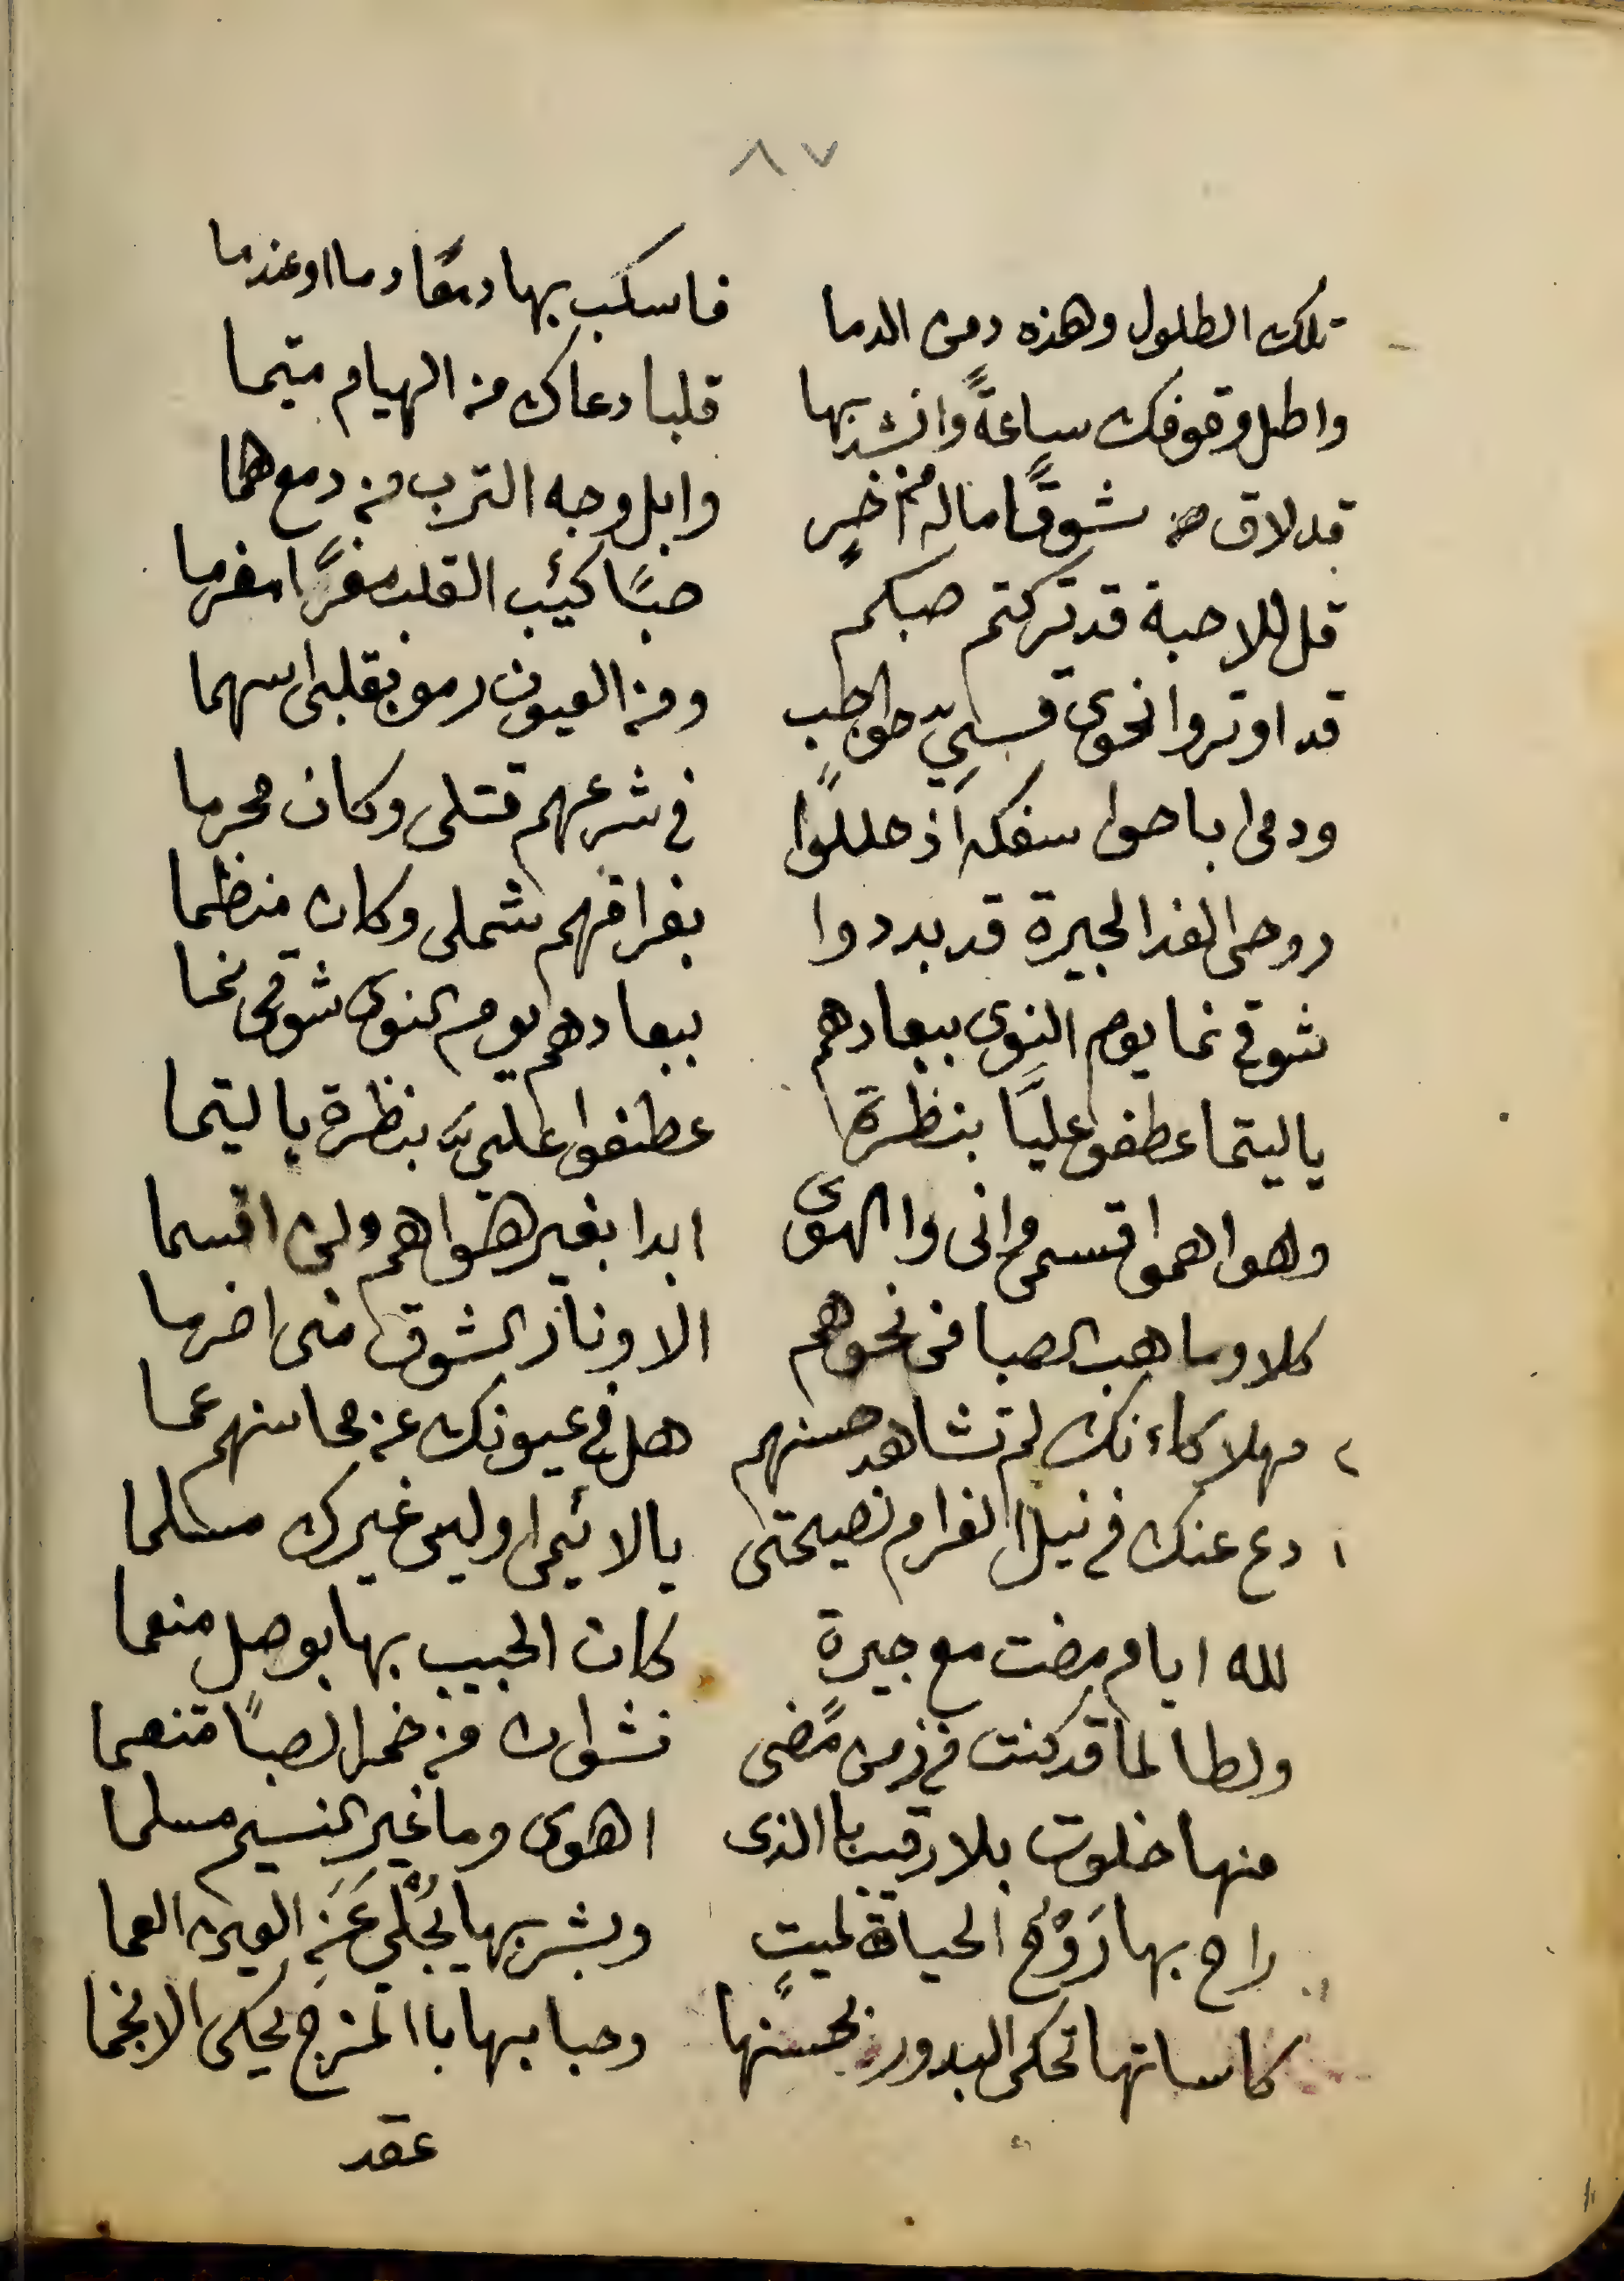 ٨٧
تلك الطلول وهذه دمى الدما فاسكب بها دمعًا دما او عندما
واطل وقوفك ساعةً وانشد بها قلبا دعاك من الهيام متيما
قد لاق من شوقًا ماله من خبرٍ وابل وجه الترب من دمع هما
قل للاحبة قد تركتم صبكم صبًا كئيب القلب مغرًا مغرما
قد اوتروا نحوى قسيّ حواجب ومن العيون رمو بقلبى اسهما
ودمى باحوا سفكه اذ حللوًا فى شرعهم قتلى وكان محرما
روحى الفدا لجيرة قد بددوا بفراقهم شملى وكان منظما
شوقى نما يوم النوى ببعادهم ببعادهم يوم النوى شوقى نما
ياليتما عطفو عليَا بنظرة عطفوا علىّ بنظرة ياليتما
وهواهموا قسمى وانى والهوى ابدا بغير هواهم ولن اقسما
كلا وما هب الصبا فى نحوهم الا ونار الشوق منى اضرما
٢ مهلا كاءنك لم تشاهد حسنهم هل فى عيونك عن محاسنهم عما
١ دع عنك فى نيل الغرام نصيحتى يالائيمى اوليس غيرك مسلما
لله ايام مضت مع جيرة كان الحبيب بها بوصل منعما
ولطا لما قد كنت فى زمن مًضى نشوان من خمر الصبًا متنعما
منها خلوت بلا رقيب باالذى اهوى وما غير النسيم مسلما
راح بها رَوْحُ الحياة لميتٍ وبشربها يُجْلَي عَنِ العين العما
كاساتها تحكى البدور بحسنها وحبابها باالمزج يحكى الانجما
عقد